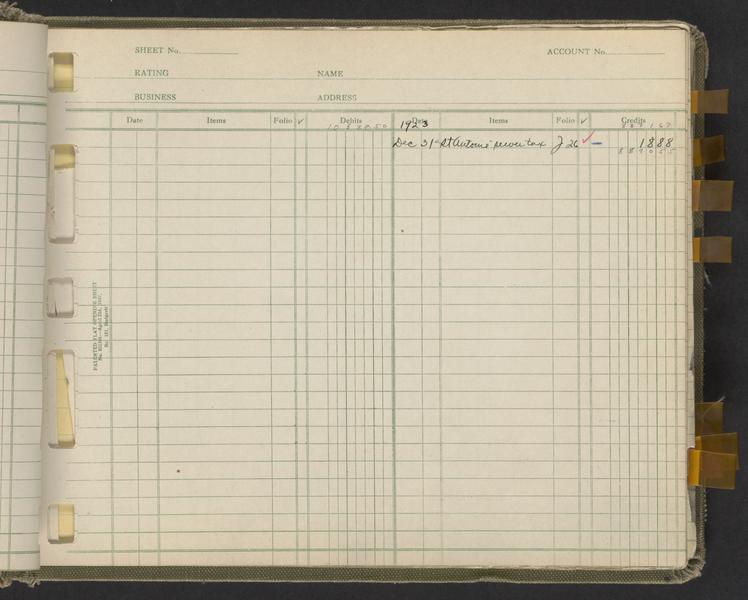 SHEET No. ACCOUNT No.
RATING NAME
BUSINESS ADDRESS
Date Items Folio ✓ Debits Date Items Folio ✓ Credits
1923
Dec 31 St Antoine sewer tax J 26 ✓ – 1888
PATENTED FLAT OPENING SHEET